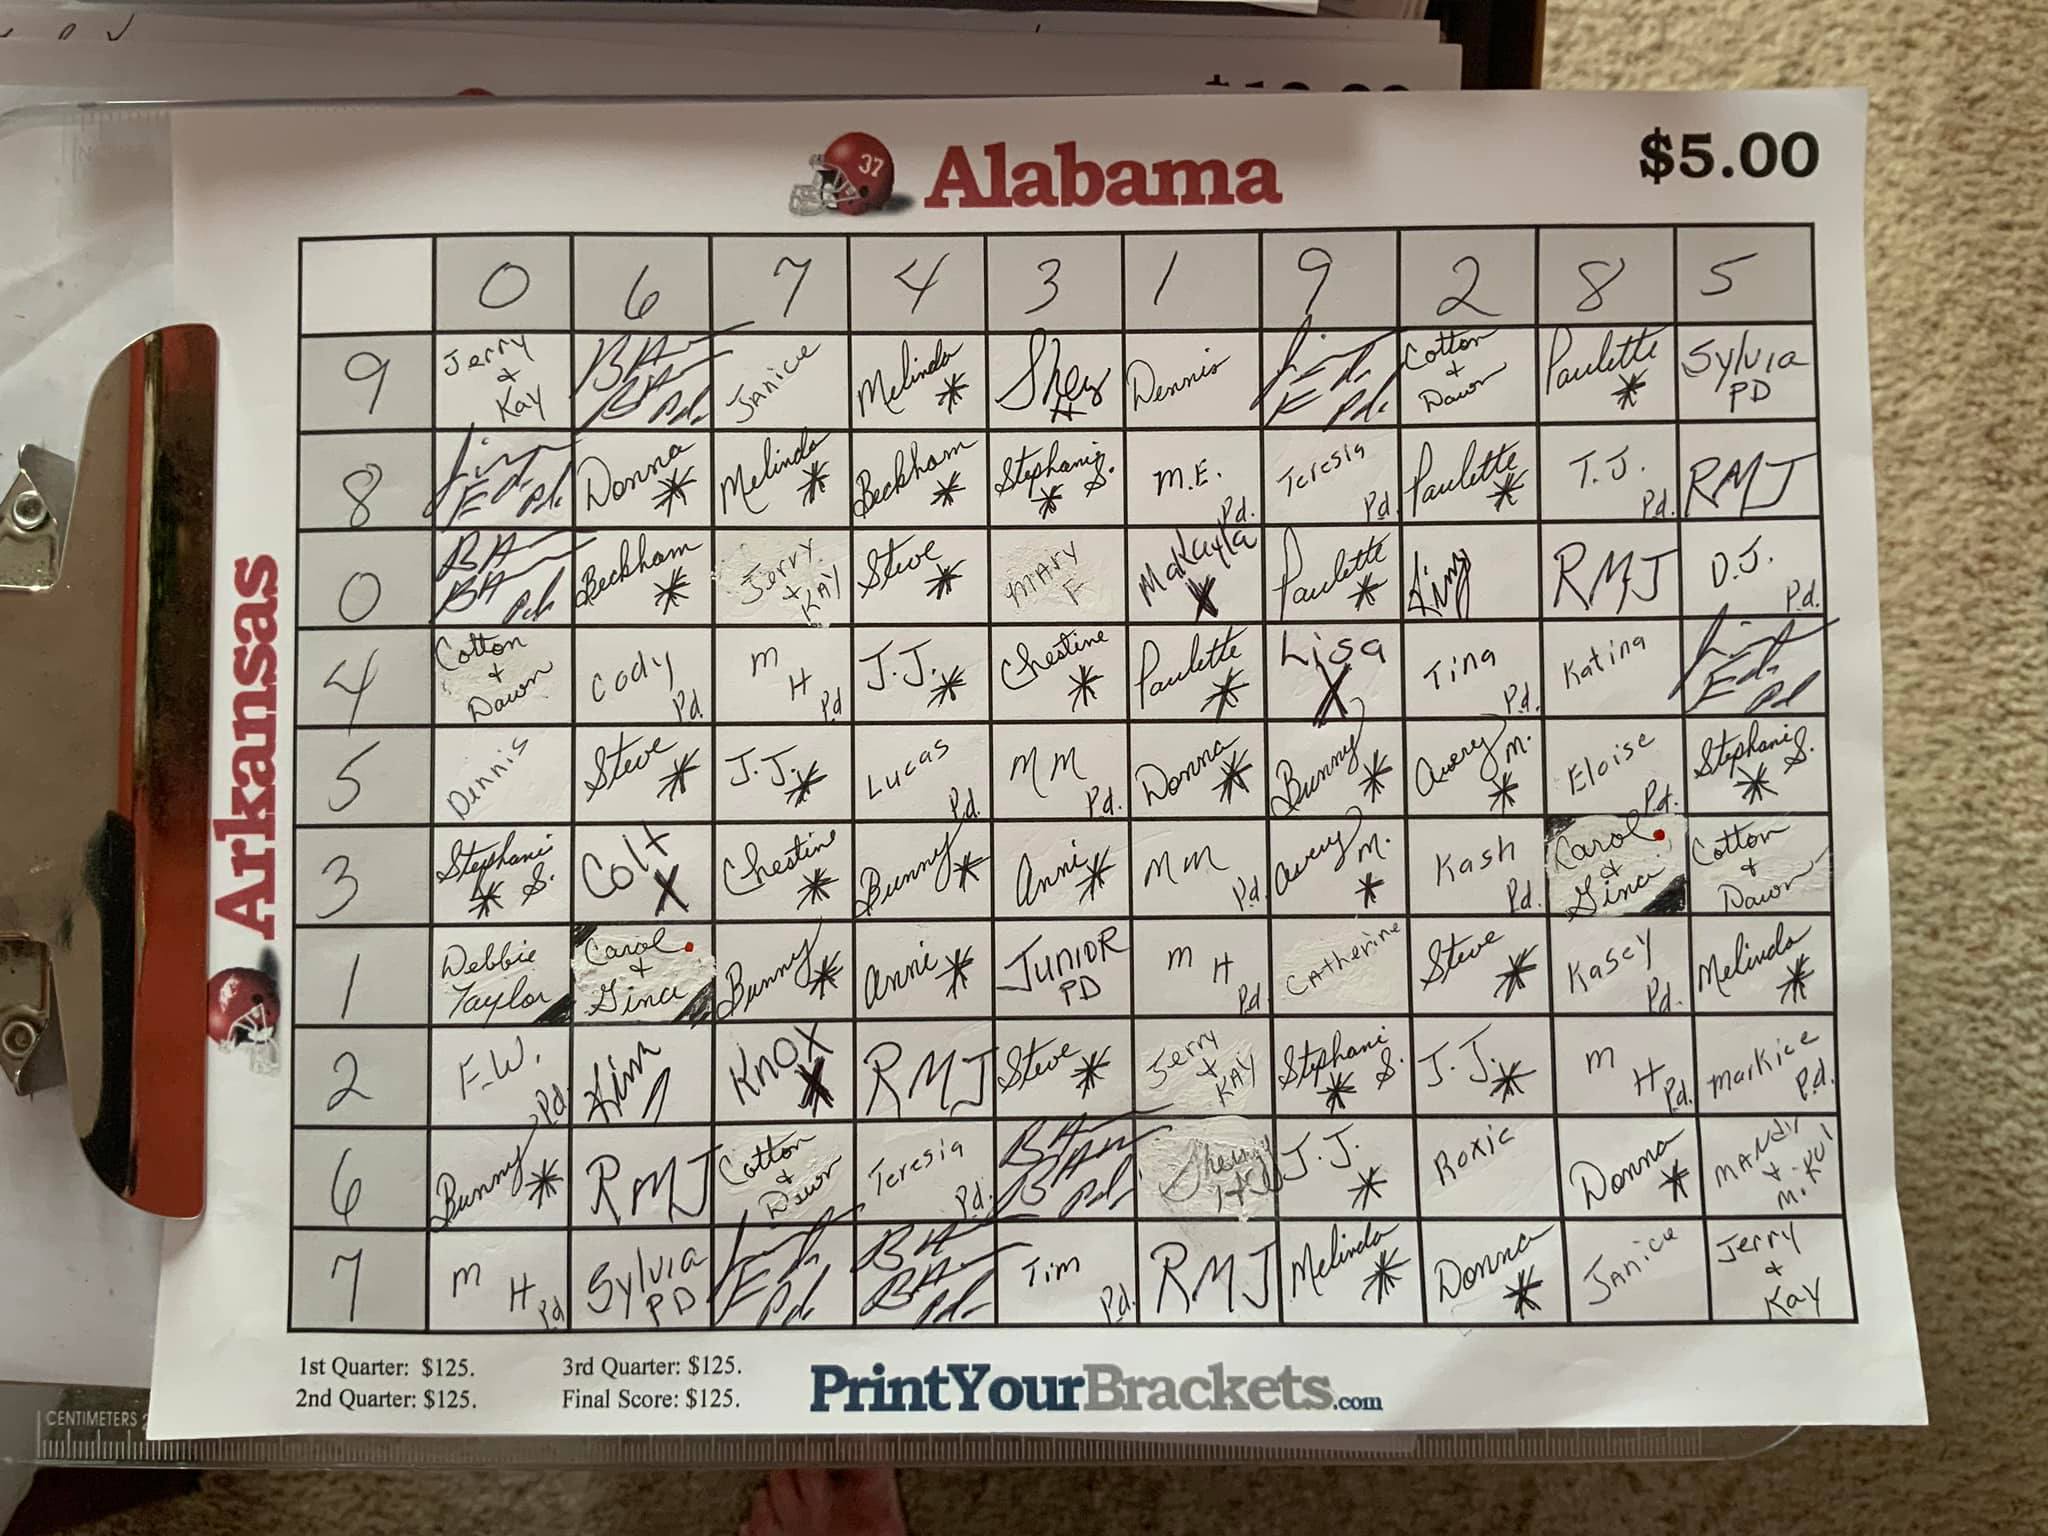 Alabama
$5.00
37
0 6 7 4 3 1 9 2 8 5
Arkansas
9 Jerry & Kay BH BH Pd. Janice Melinda * Shey * Dennis Ed. Pd. Cotton & Dawn Paulette * Sylvia PD
8 Ed. Pd. Donna * Melinda * Beckham * Stephanie S. * M.E. Pd. Teresia Pd. Paulette * T.J. Pd. RMJ
0 BH BH Pd. Beckham * Jerry & KAY Steve * MARY F Makayla X Paulette * Kim RMJ D.J. Pd.
4 Cotton & Dawn Cody Pd. M H Pd J.J. * Chestine * Paulette * Lisa X Tina Pd. Katina Ed. Pd
5 Dennis Steve * J.J. * Lucas Pd. MM Pd. Donna * Bunny * Avery M. * Eloise Pd. Stephani S. *
3 Stephani S. * Colt X Chestine * Bunny * Anni * MM Pd. Avery M. * Kash Pd. Carol & Ginci Cotton & Dawn
1 Debbie Taylor Carol & Ginci Bunny * Anni * JUNIOR PD M H Pd. CAtherine Steve * Kasey Pd. Melinda *
2 F.W. Pd. Kim KNOX X RMJ Steve * Jerry & KAY Stephani S. * J.J. * M H Pd. Markice Pd.
6 Bunny * RMJ Cotton & Dawn Teresia Pd. BH BH Pd. J.J. * Roxie Donna * MANdy & MiKul
7 M H Pd Sylvia PD E Pd. BH BH Pd. Tim Pd. RMJ Melinda * Donna * Janice Jerry & Kay
1st Quarter: $125. 3rd Quarter: $125.
2nd Quarter: $125. Final Score: $125.
PrintYourBrackets.com
CENTIMETERS